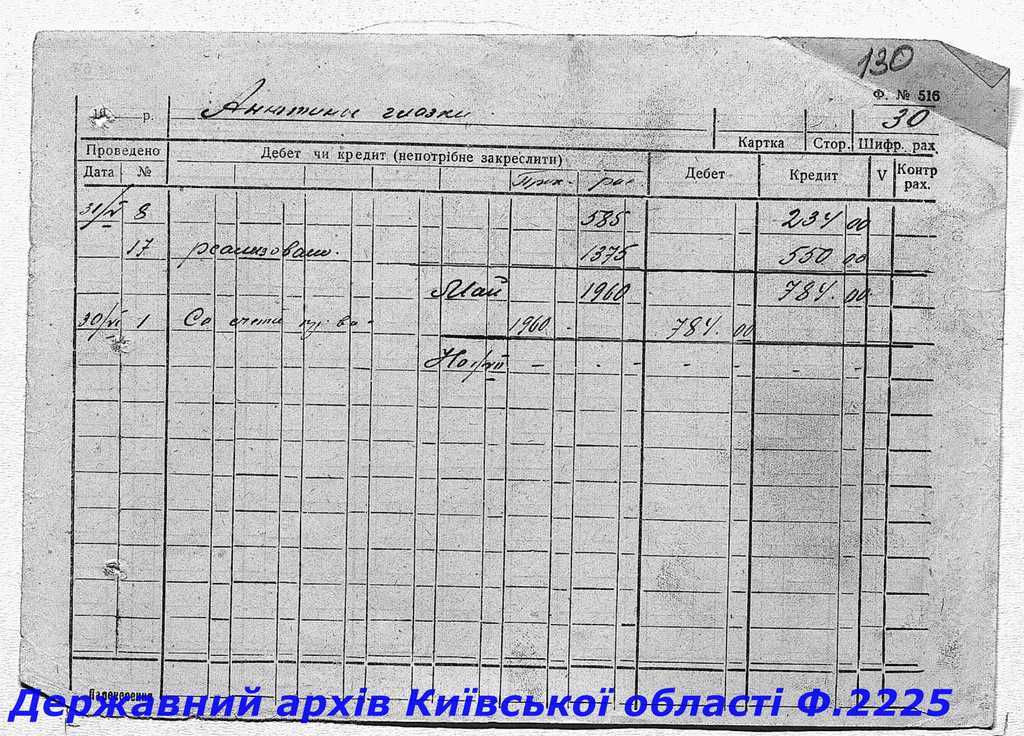 130
Ф. № 516
19 р. Анютины глазки 30
Картка Стор. Шифр. рах
Проведено Дебет чи кредит (непотрібне закреслити) Дебет Кредит V Контр рах.
Дата № Прих. рас
31/V 8 585 234 00
17 реализовано. 1375 550 00
Май 1960 784. 00
30/VI 1 Со счета 1960 - 784. 00
На 1/VII - - - - - - -
Державний архів Київської області Ф.2225